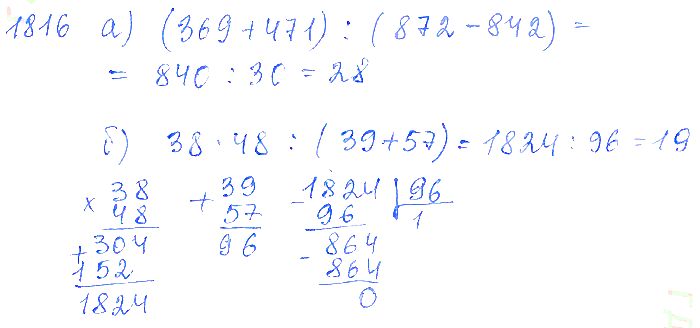 1816 а) (369+471) : (872-842) =
= 840 : 30 = 28
б) 38 · 48 : (39+57) = 1824 : 96 = 19
× 38 + 39 - 1824 | 96
48 57 96 1
+ 304 96 - 864
152 864
1824 0